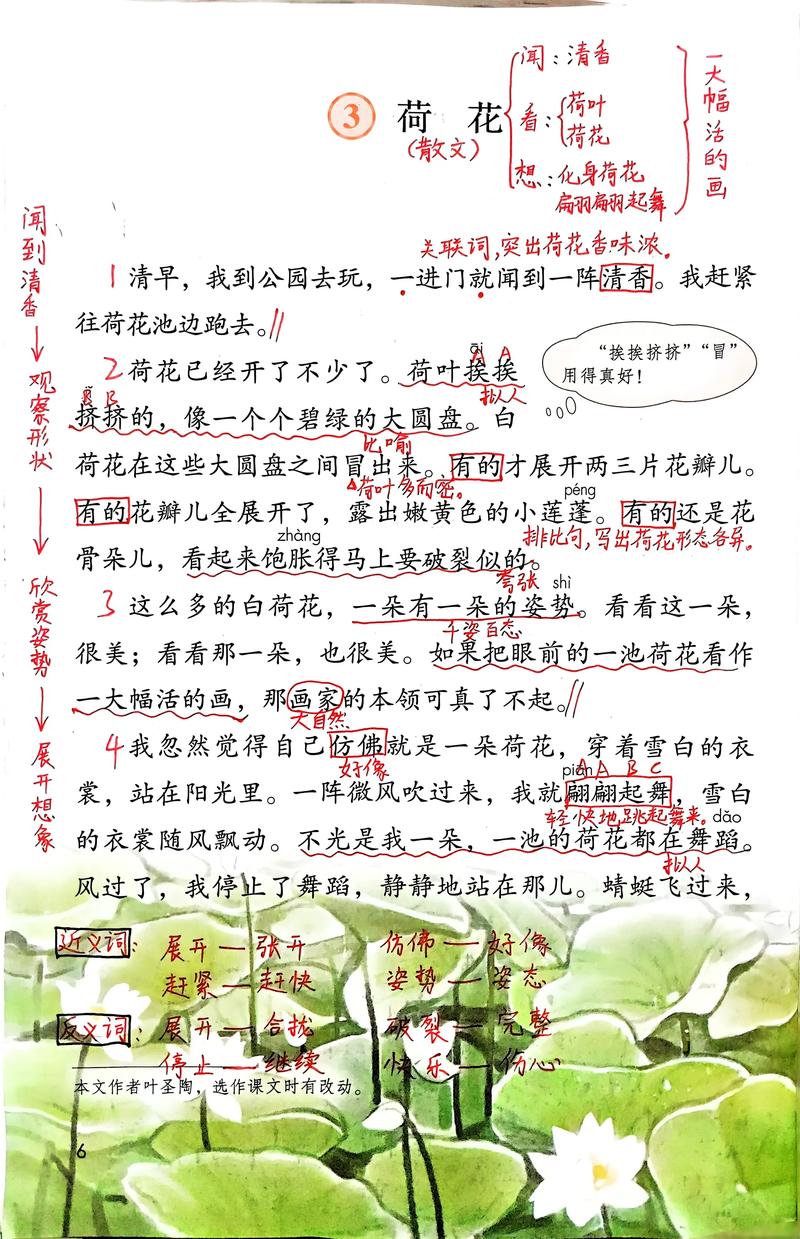 闻：清香
③ 荷 花
看：荷叶
荷花
(散文)
想：化身荷花
翩翩起舞
一大幅活的画
闻到清香→观察形状→欣赏姿势→展开想象
关联词,突出荷花香味浓。
1 清早，我到公园去玩，一进门就闻到一阵清香。我赶紧
往荷花池边跑去。//
āi A A
2 荷花已经开了不少了。荷叶挨挨
拟人
“挨挨挤挤”“冒”
用得真好！
B B
挤挤的，像一个个碧绿的大圆盘。白
比喻
荷花在这些大圆盘之间冒出来。有的才展开两三片花瓣儿。
荷叶多而密。
péng
有的花瓣儿全展开了，露出嫩黄色的小莲蓬。有的还是花
zhàng
排比句,写出荷花形态各异。
骨朵儿，看起来饱胀得马上要破裂似的。
夸张 shì
3 这么多的白荷花，一朵有一朵的姿势。看看这一朵，
千姿百态
很美；看看那一朵，也很美。如果把眼前的一池荷花看作
一大幅活的画，那画家的本领可真了不起。//
大自然
4 我忽然觉得自己仿佛就是一朵荷花，穿着雪白的衣
好像
piān A A B C
裳，站在阳光里。一阵微风吹过来，我就翩翩起舞，雪白
轻快地跳起舞来。 dǎo
的衣裳随风飘动。不光是我一朵，一池的荷花都在舞蹈。
拟人
风过了，我停止了舞蹈，静静地站在那儿。蜻蜓飞过来，
近义词：展开—张开 仿佛—好像
赶紧—赶快 姿势—姿态
反义词：展开—合拢 破裂—完整
停止—继续 快乐—伤心
本文作者叶圣陶，选作课文时有改动。
6